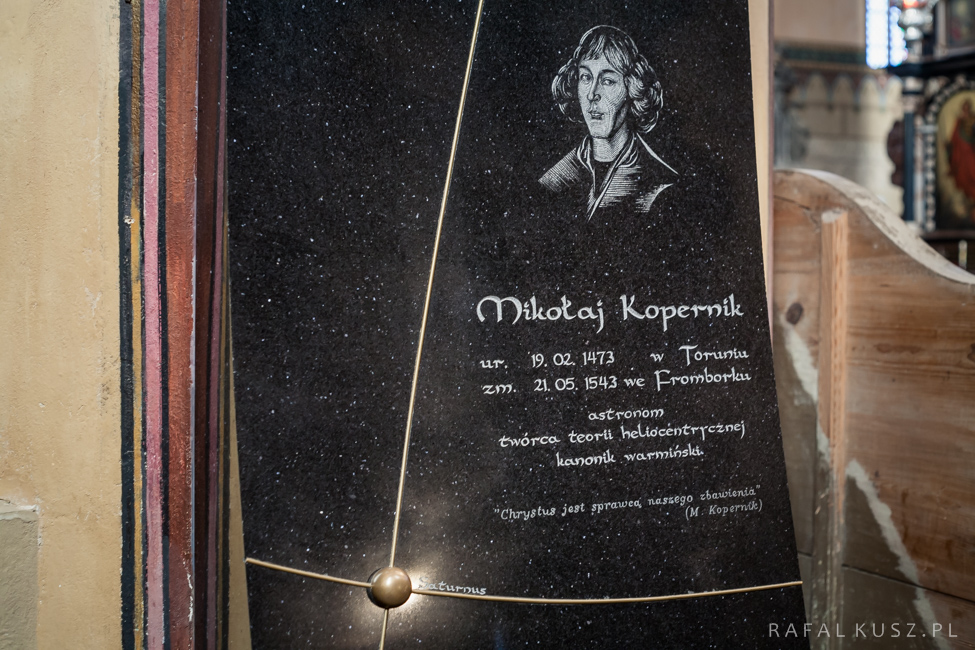 Mikołaj Kopernik
ur. 19. 02. 1473 w Toruniu
zm. 21. 05. 1543 we Fromborku
astronom
twórca teorii heliocentrycznej
kanonik warmiński.
"Chrystus jest sprawcą naszego zbawienia"
(M. Kopernik)
Saturnus
RAFAL KUSZ.PL